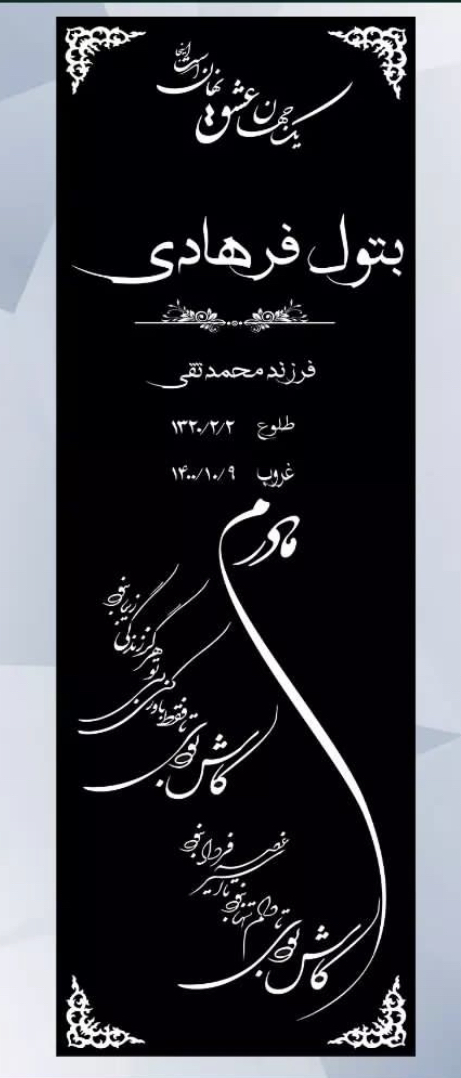 یک جهان عشق نهان است اینجا
بتول فرهادی
فرزند محمدتقی
طلوع ۱۳۲۰/۲/۲
غروب ۱۴۰۰/۱۰/۹
مادرم
کاش بودی تا فقط باور کنی
بی تو هرگز زندگی زیبا نبود
کاش بودی تا دلم تنها نبود
تا اسیر غصه فردا نبود